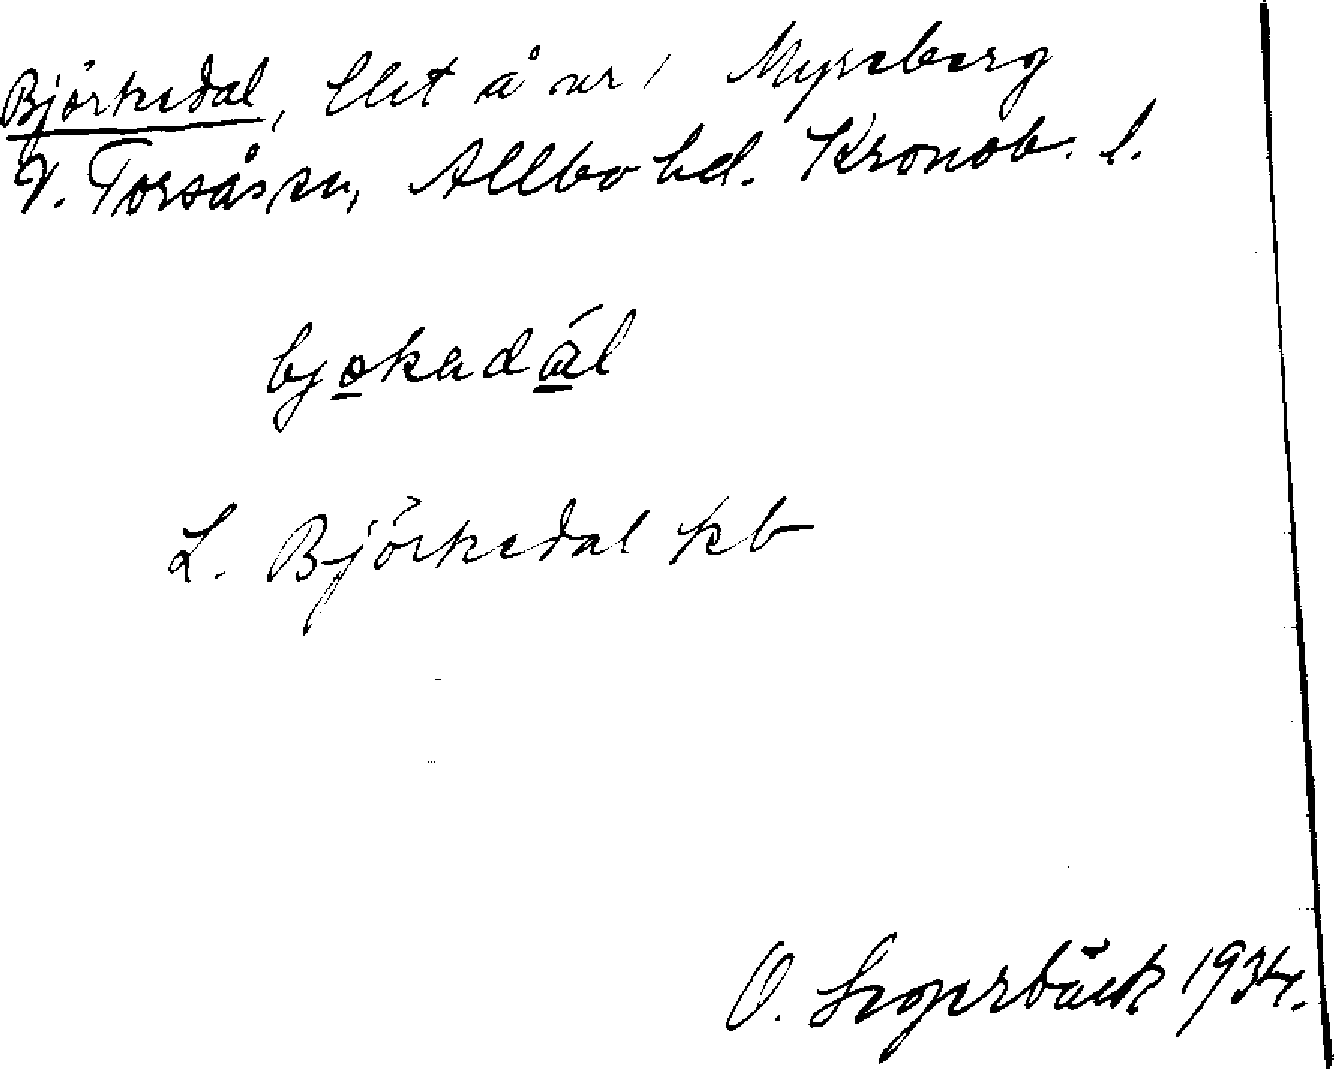 Björkedal, llet å nr 1 Myreberg
V. Torsås sn, Allbo hd. Kronob. l.
bjokadál
L. Björkedal kb
O. Segerbäck 1934.